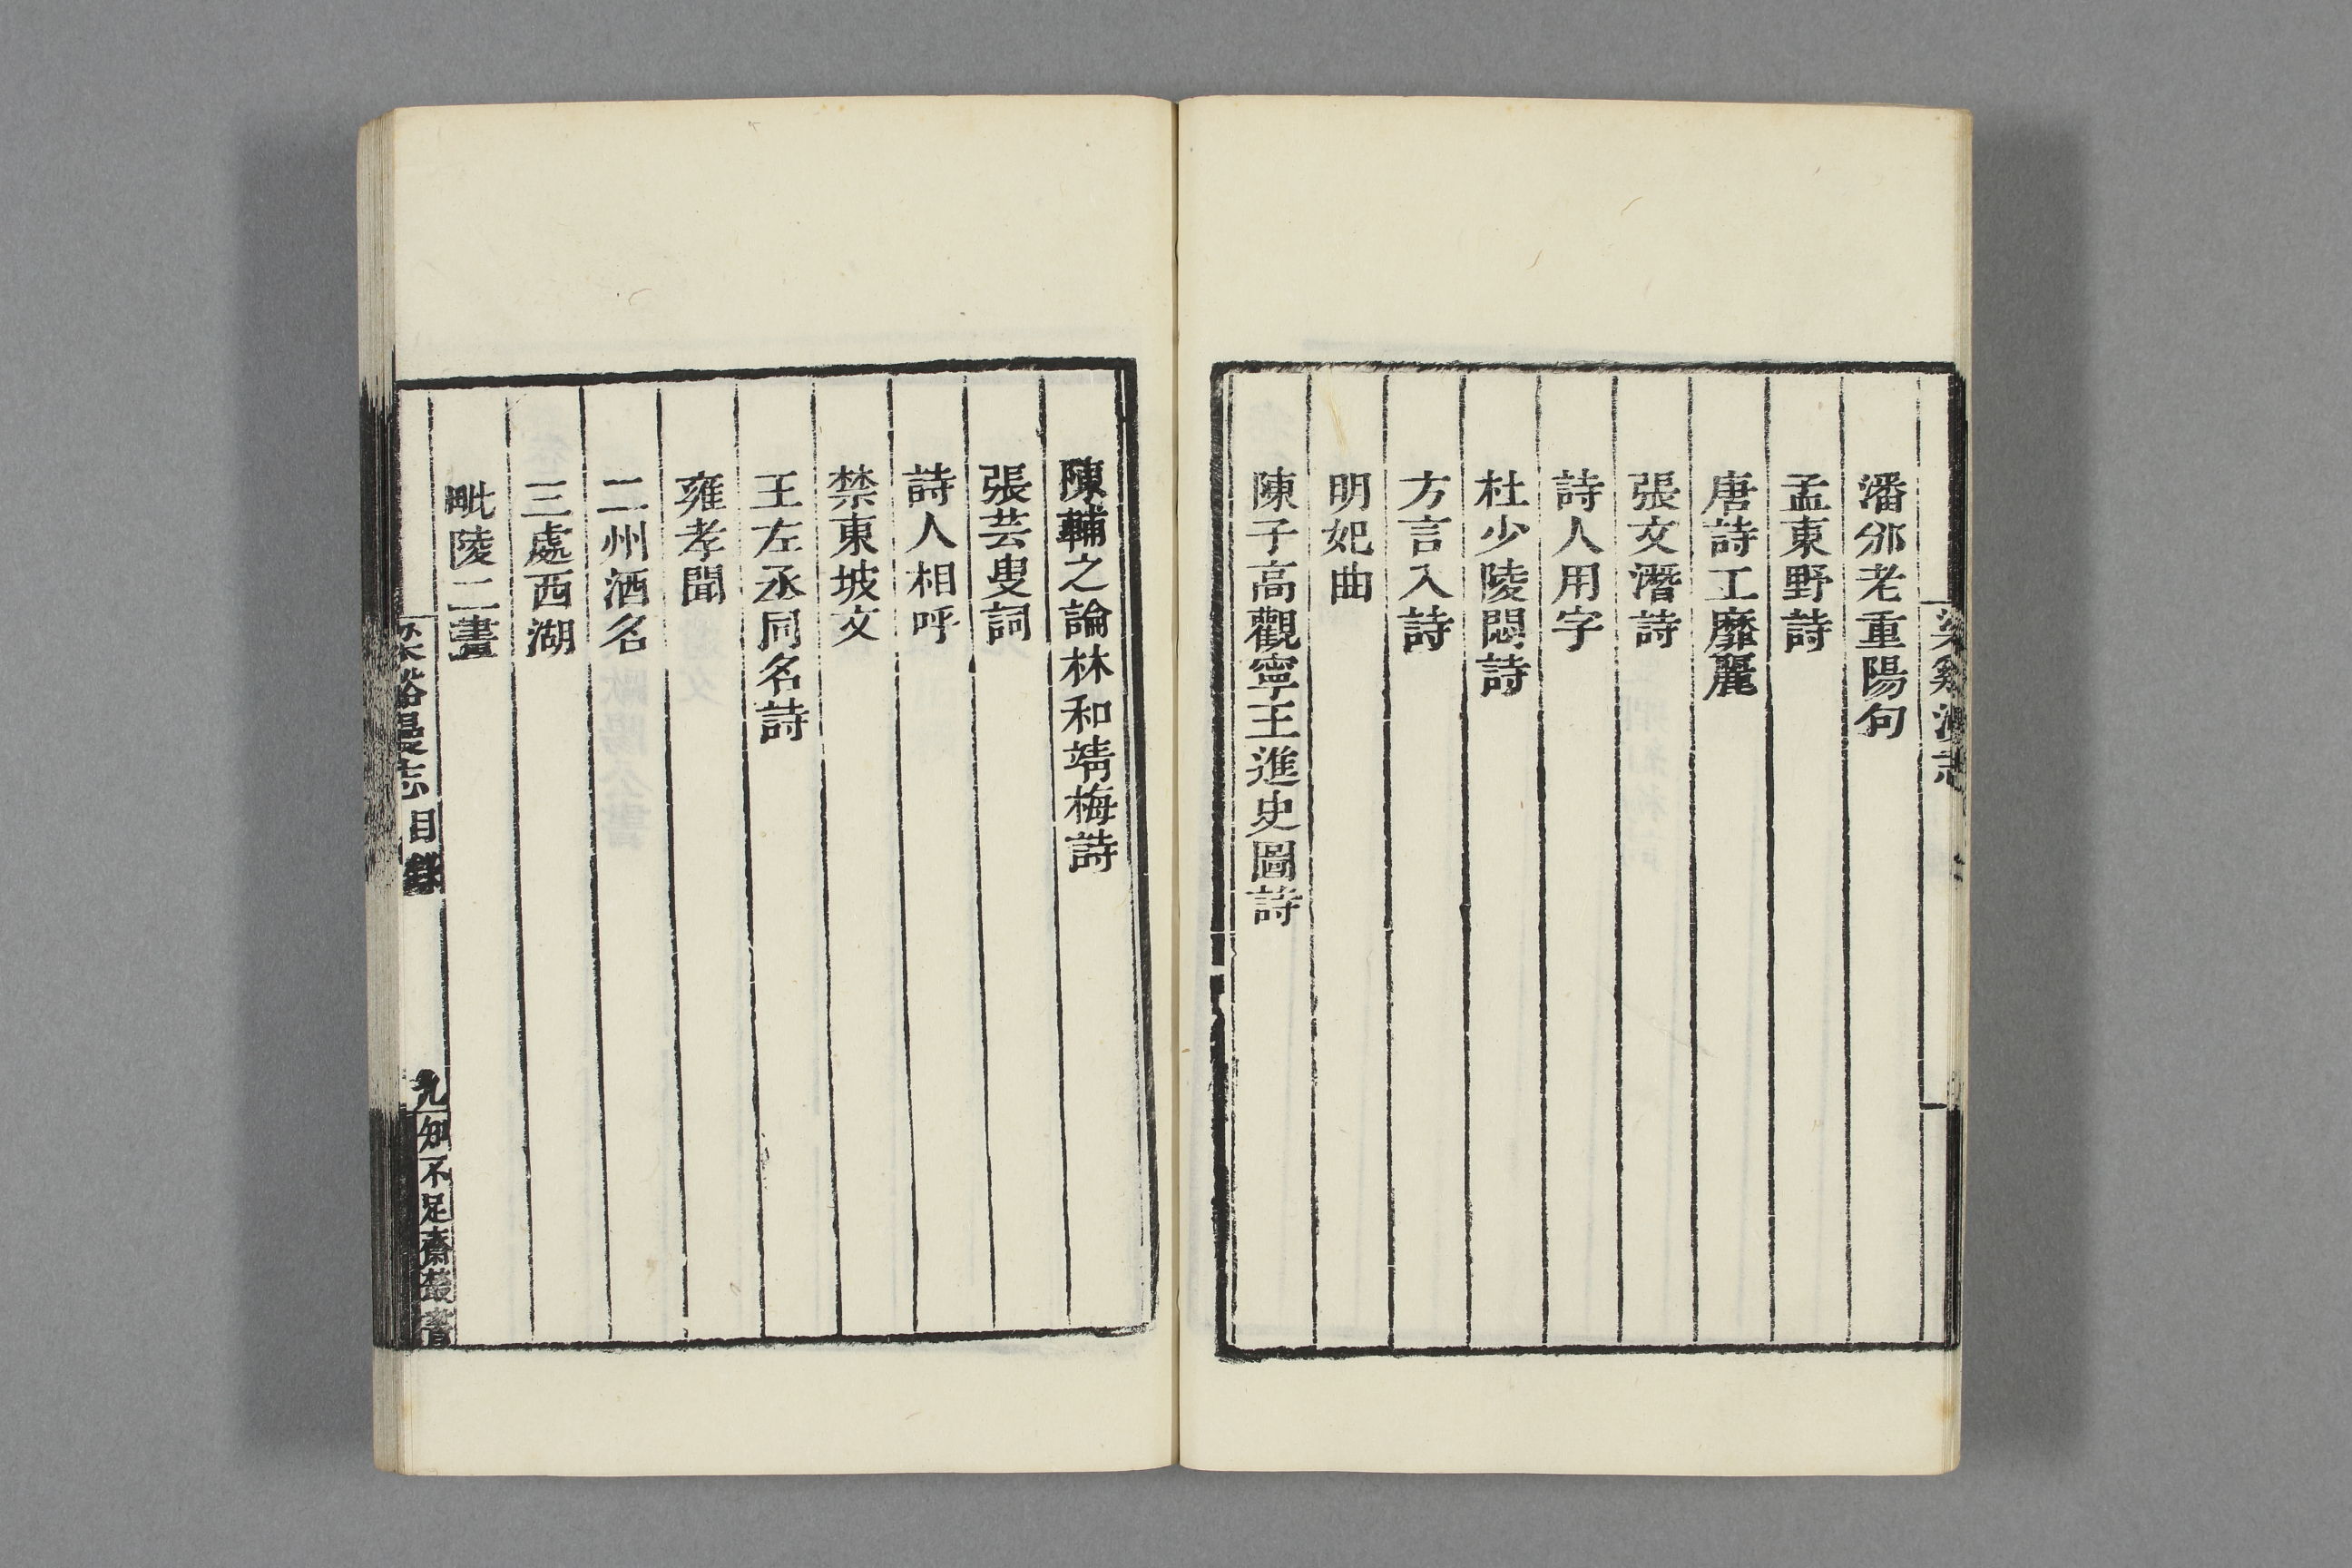 梁谿漫志
潘邠老重陽句
孟東野詩
唐詩工靡麗
張文潛詩
詩人用字
杜少陵悶詩
方言入詩
明妃曲
陳子高觀寧王進史圖詩
陳輔之論林和靖梅詩
張芸叟詞
詩人相呼
禁東坡文
王左丞同名詩
雍孝聞
二州酒名
三處西湖
毗陵二畫
梁谿漫志 目錄 九 知不足齋叢書